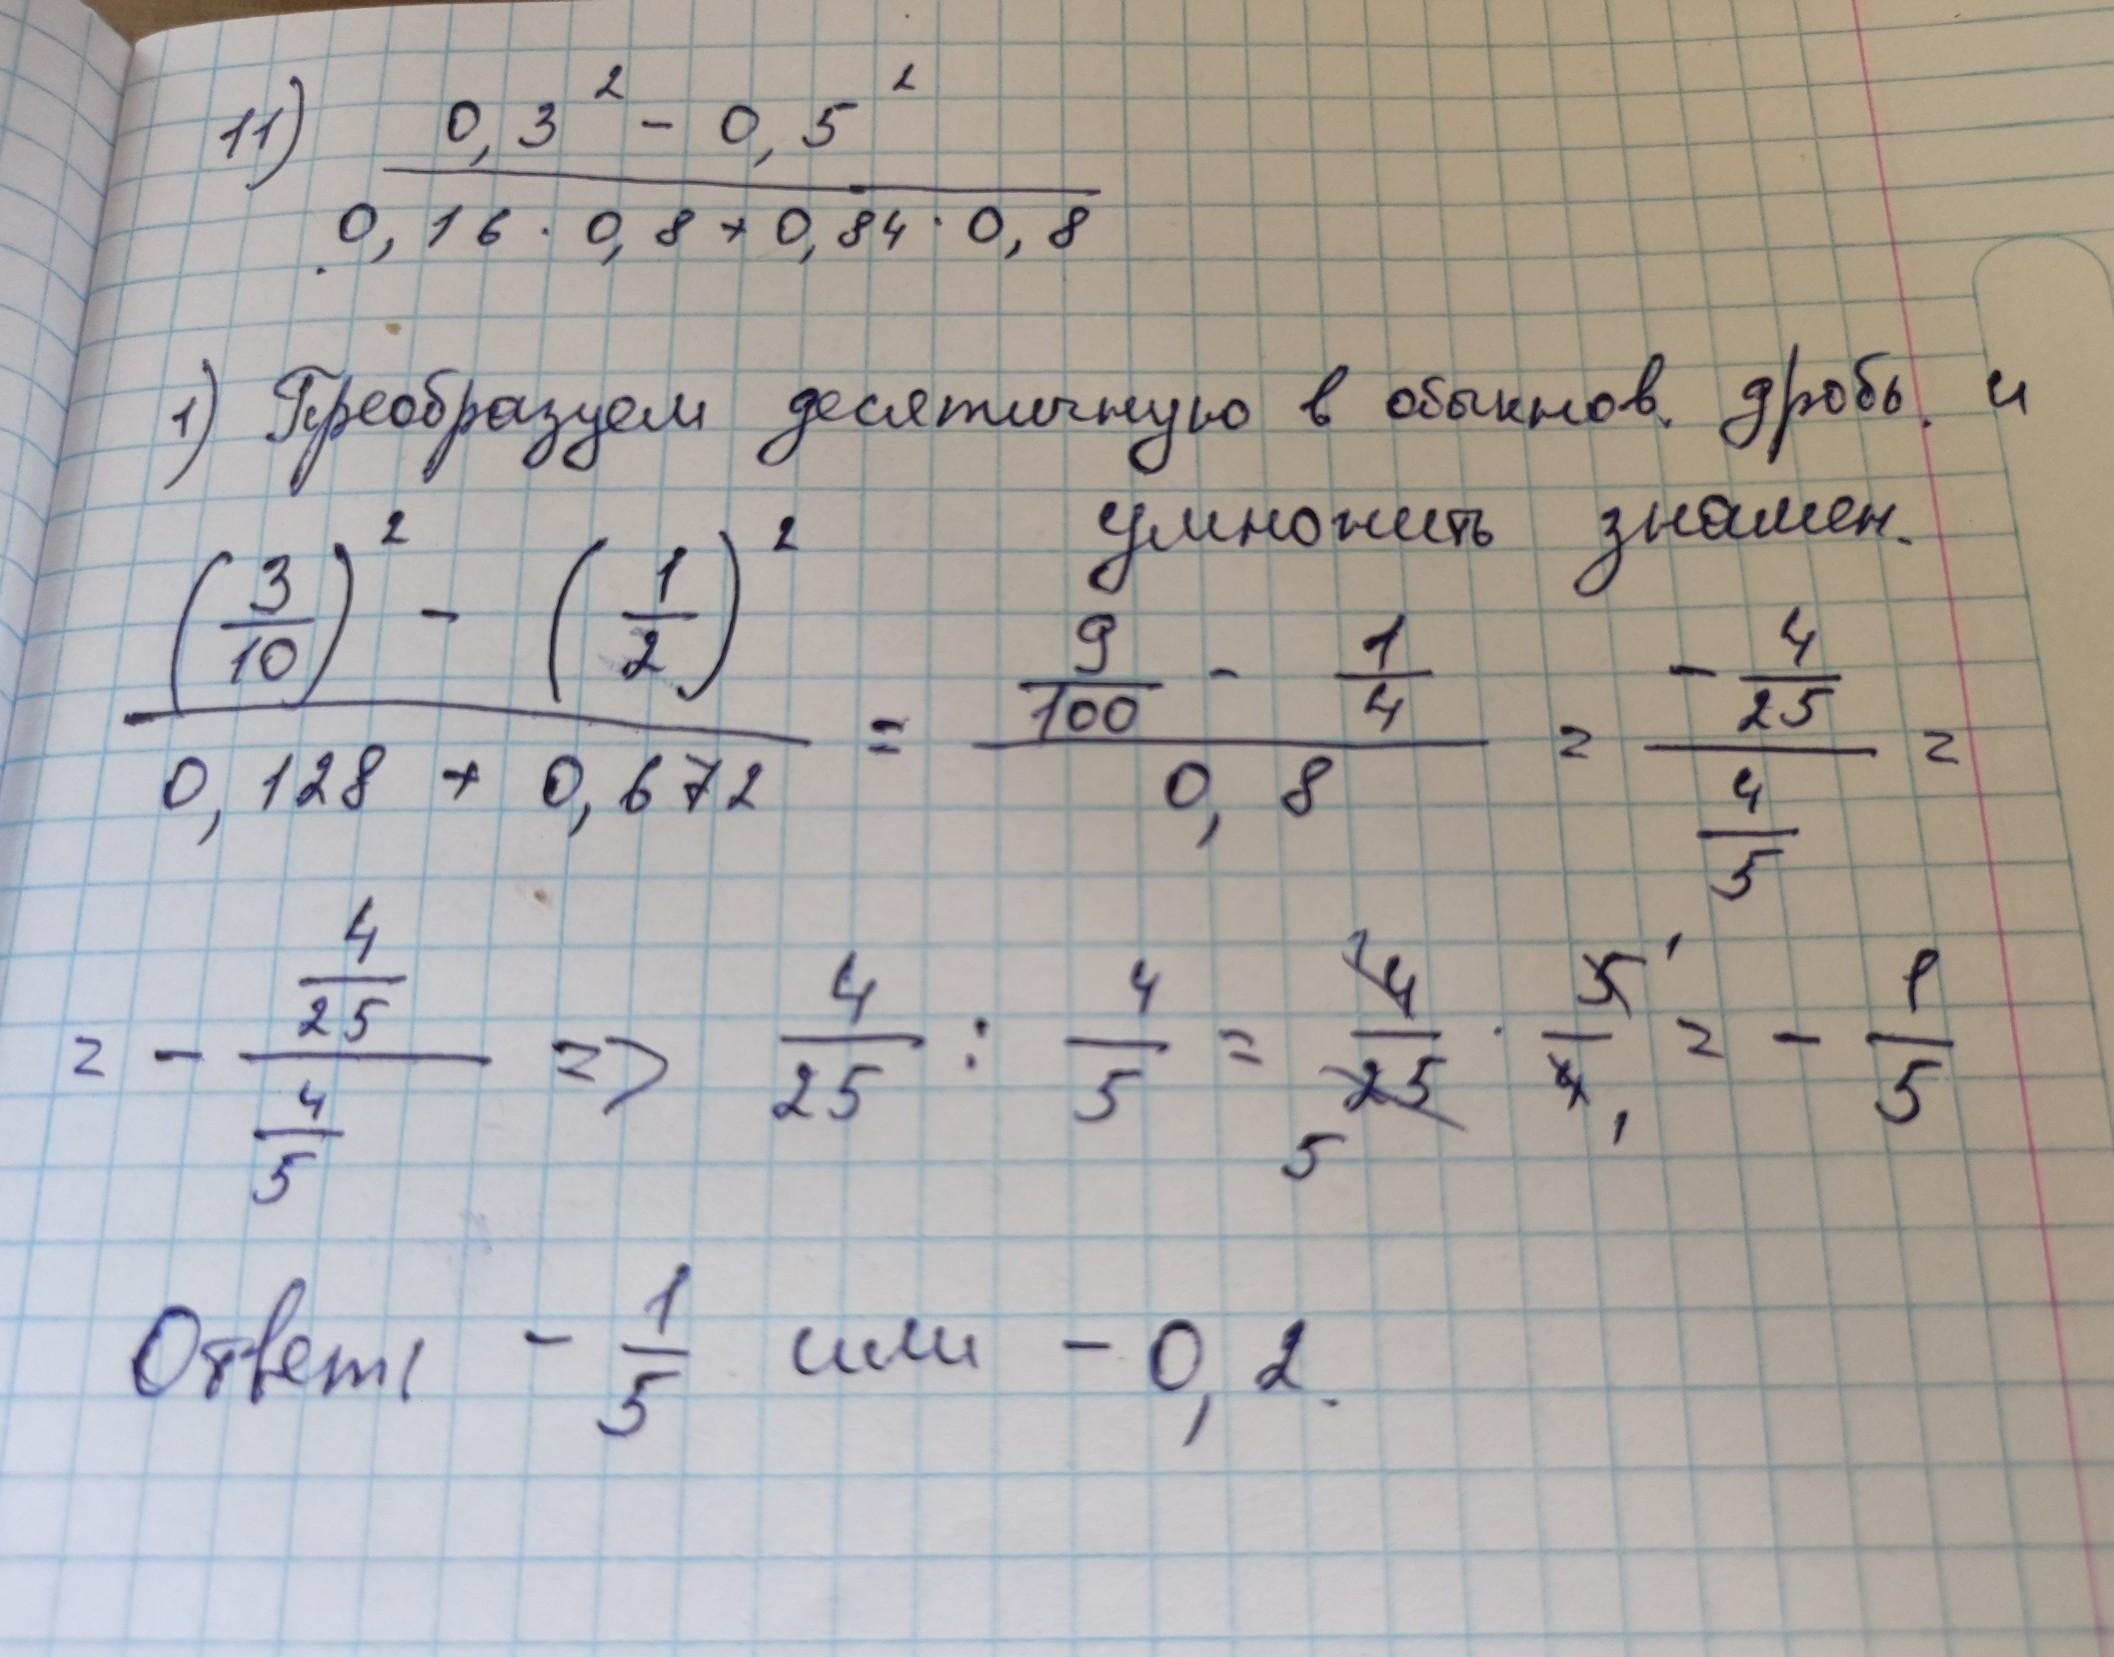 11) (0,3² - 0,5²) / (0,16 · 0,8 + 0,84 · 0,8)
1) Преобразуем десятичную в обыкнов. дробь. и
умножить знамен.
((3/10)² - (1/2)²) / (0,128 + 0,672) = (9/100 - 1/4) / 0,8 = (- 4/25) / (4/5) =
= - (4/25) / (4/5) => 4/25 : 4/5 = 4/25 · 5/4 = - 1/5
Ответ: - 1/5 или - 0,2.